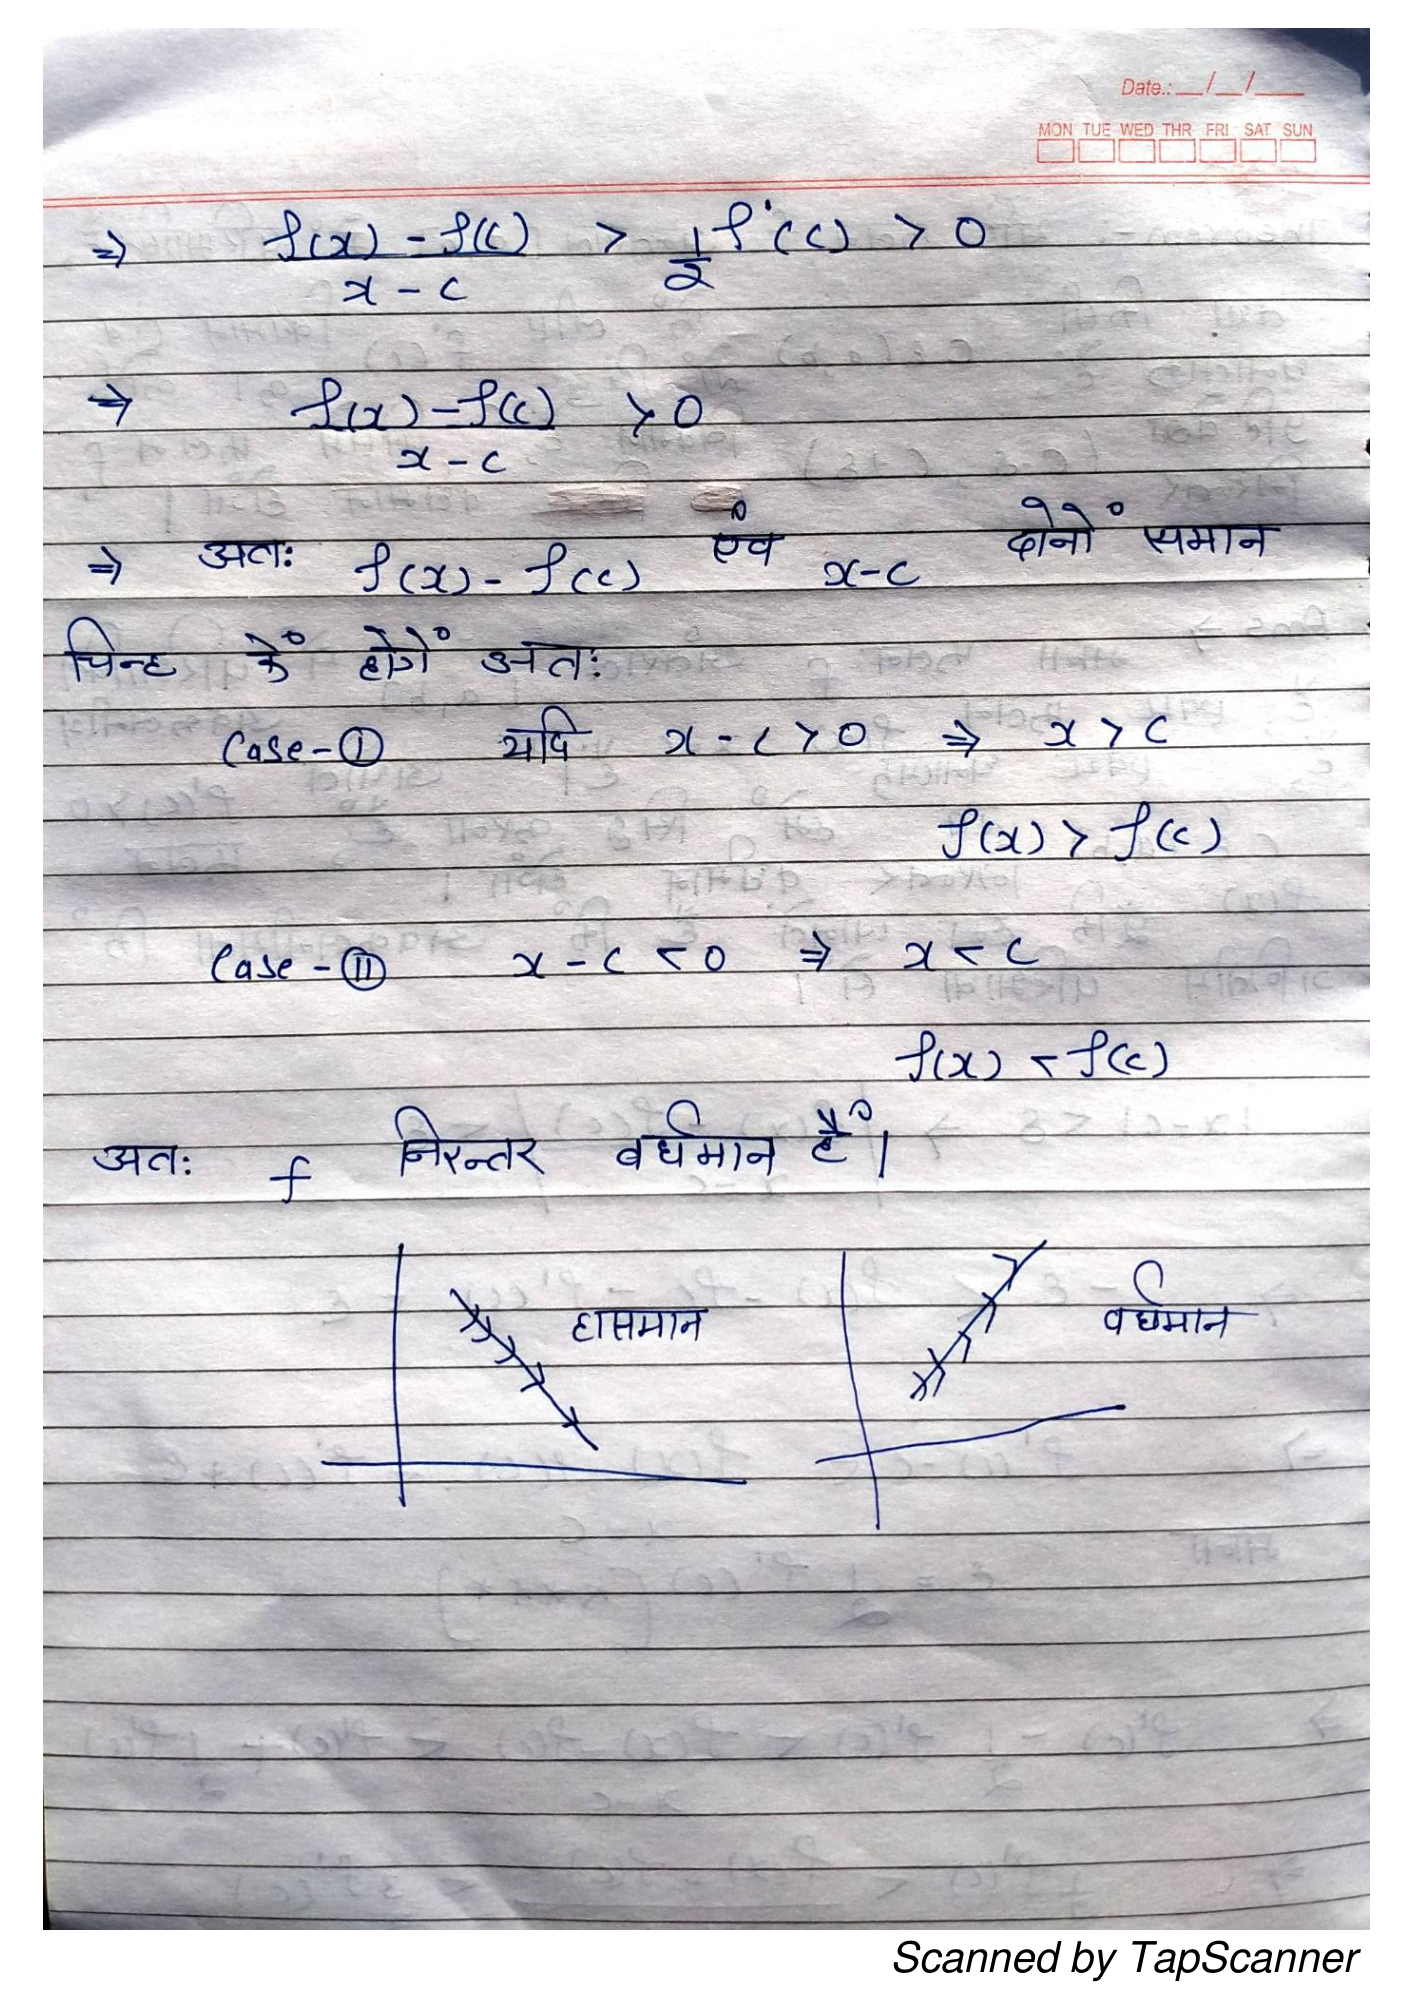 Date.: __/__/___
MON TUE WED THR FRI SAT SUN
⇒ f(x) - f(c) / x - c > 1/2 f'(c) > 0
⇒ f(x) - f(c) / x - c > 0
⇒ अतः f(x) - f(c) एंव x-c दोनों समान
चिन्ह कें होगें अतः
Case - I यदि x - c > 0 ⇒ x > c
f(x) > f(c)
Case - II x - c < 0 ⇒ x < c
f(x) < f(c)
अतः f निरन्तर वर्धमान है।
हासमान वर्धमान
Scanned by TapScanner